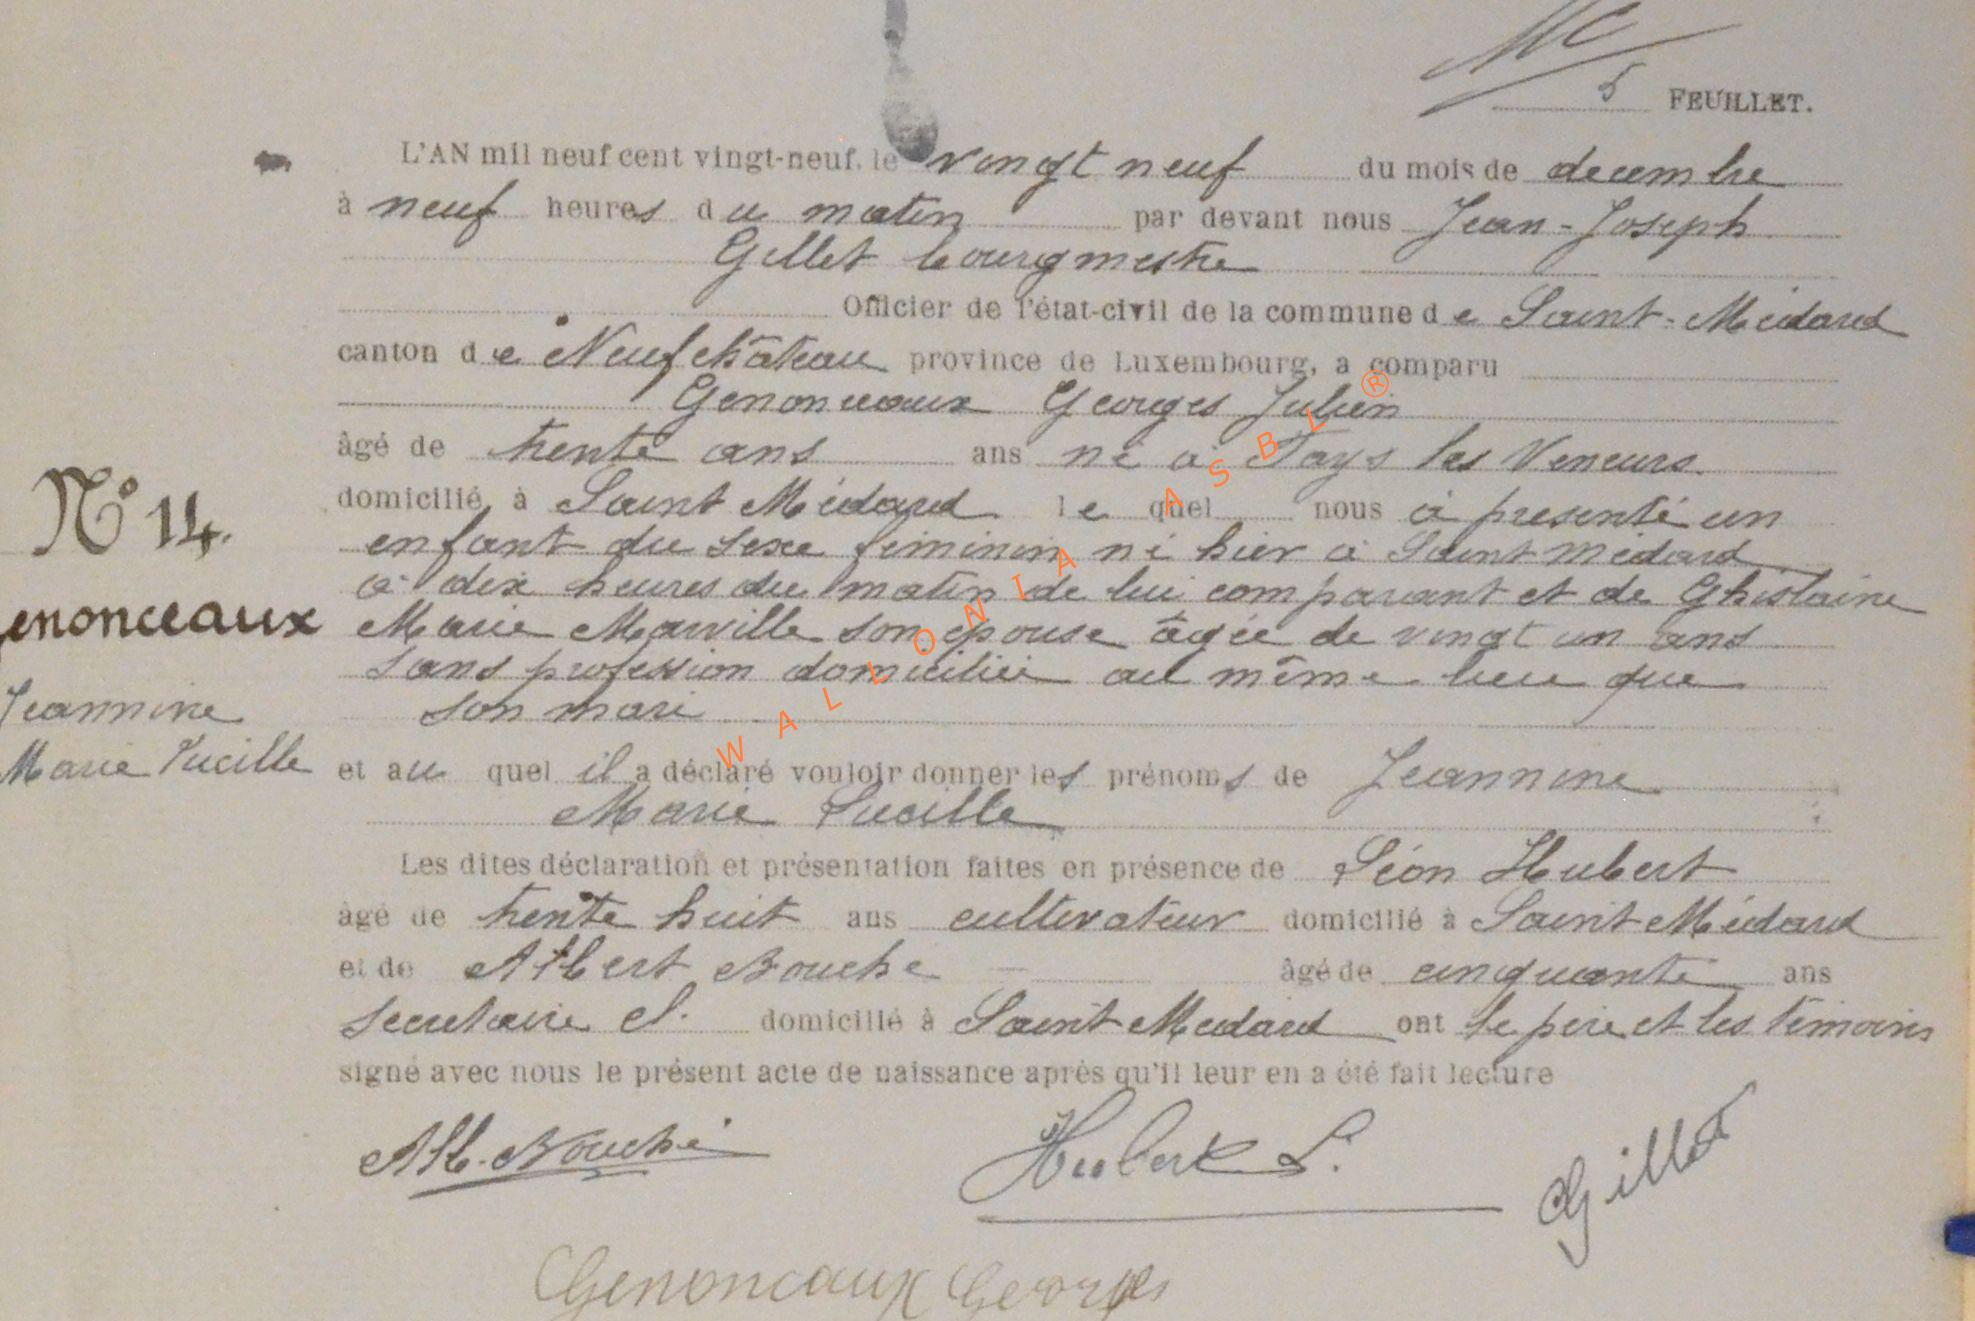 5 FEUILLET.
L'AN mil neuf cent vingt-neuf, le vingt neuf du mois de decembre
à neuf heures du matin par devant nous Jean-Joseph
Gillet bourgmestre
Officier de l'état-civil de la commune de Saint-Médard
canton de Neufchâteau province de Luxembourg, a comparu
Genonceaux Georges Julien
âgé de trente ans ans né à Tays les Veneurs
domicilié à Saint Médard lequel nous à presenté un
enfant du sexe féminin né hier à Saint Médard
à dix heures du matin de lui comparant et de Ghislaine
N° 14.
Genonceaux
Marie Marville son epouse âgée de vingt un ans
sans profession domiciliée au même lieu que
son mari
Jeannine
Marie Lucille
et auquel il a déclaré vouloir donner les prénoms de Jeannine
Marie Lucille
Les dites déclaration et présentation faites en présence de Léon Hubert
âgé de trente huit ans cultivateur domicilié à Saint Médard
et de Albert Bouché âgé de cinquante ans
secretaire cl. domicilié à Saint Médard ont le père et les témoins
signé avec nous le présent acte de naissance après qu'il leur en a été fait lecture
Alb. Bouché Hubert L. Gillet
Genonceaux Georges
WALLONIA ASBL ®